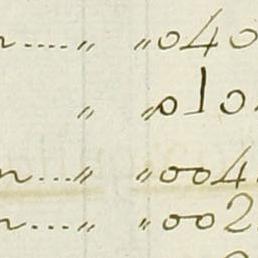 n....„ „040
„ „010
n....„ „004
n....„ „002